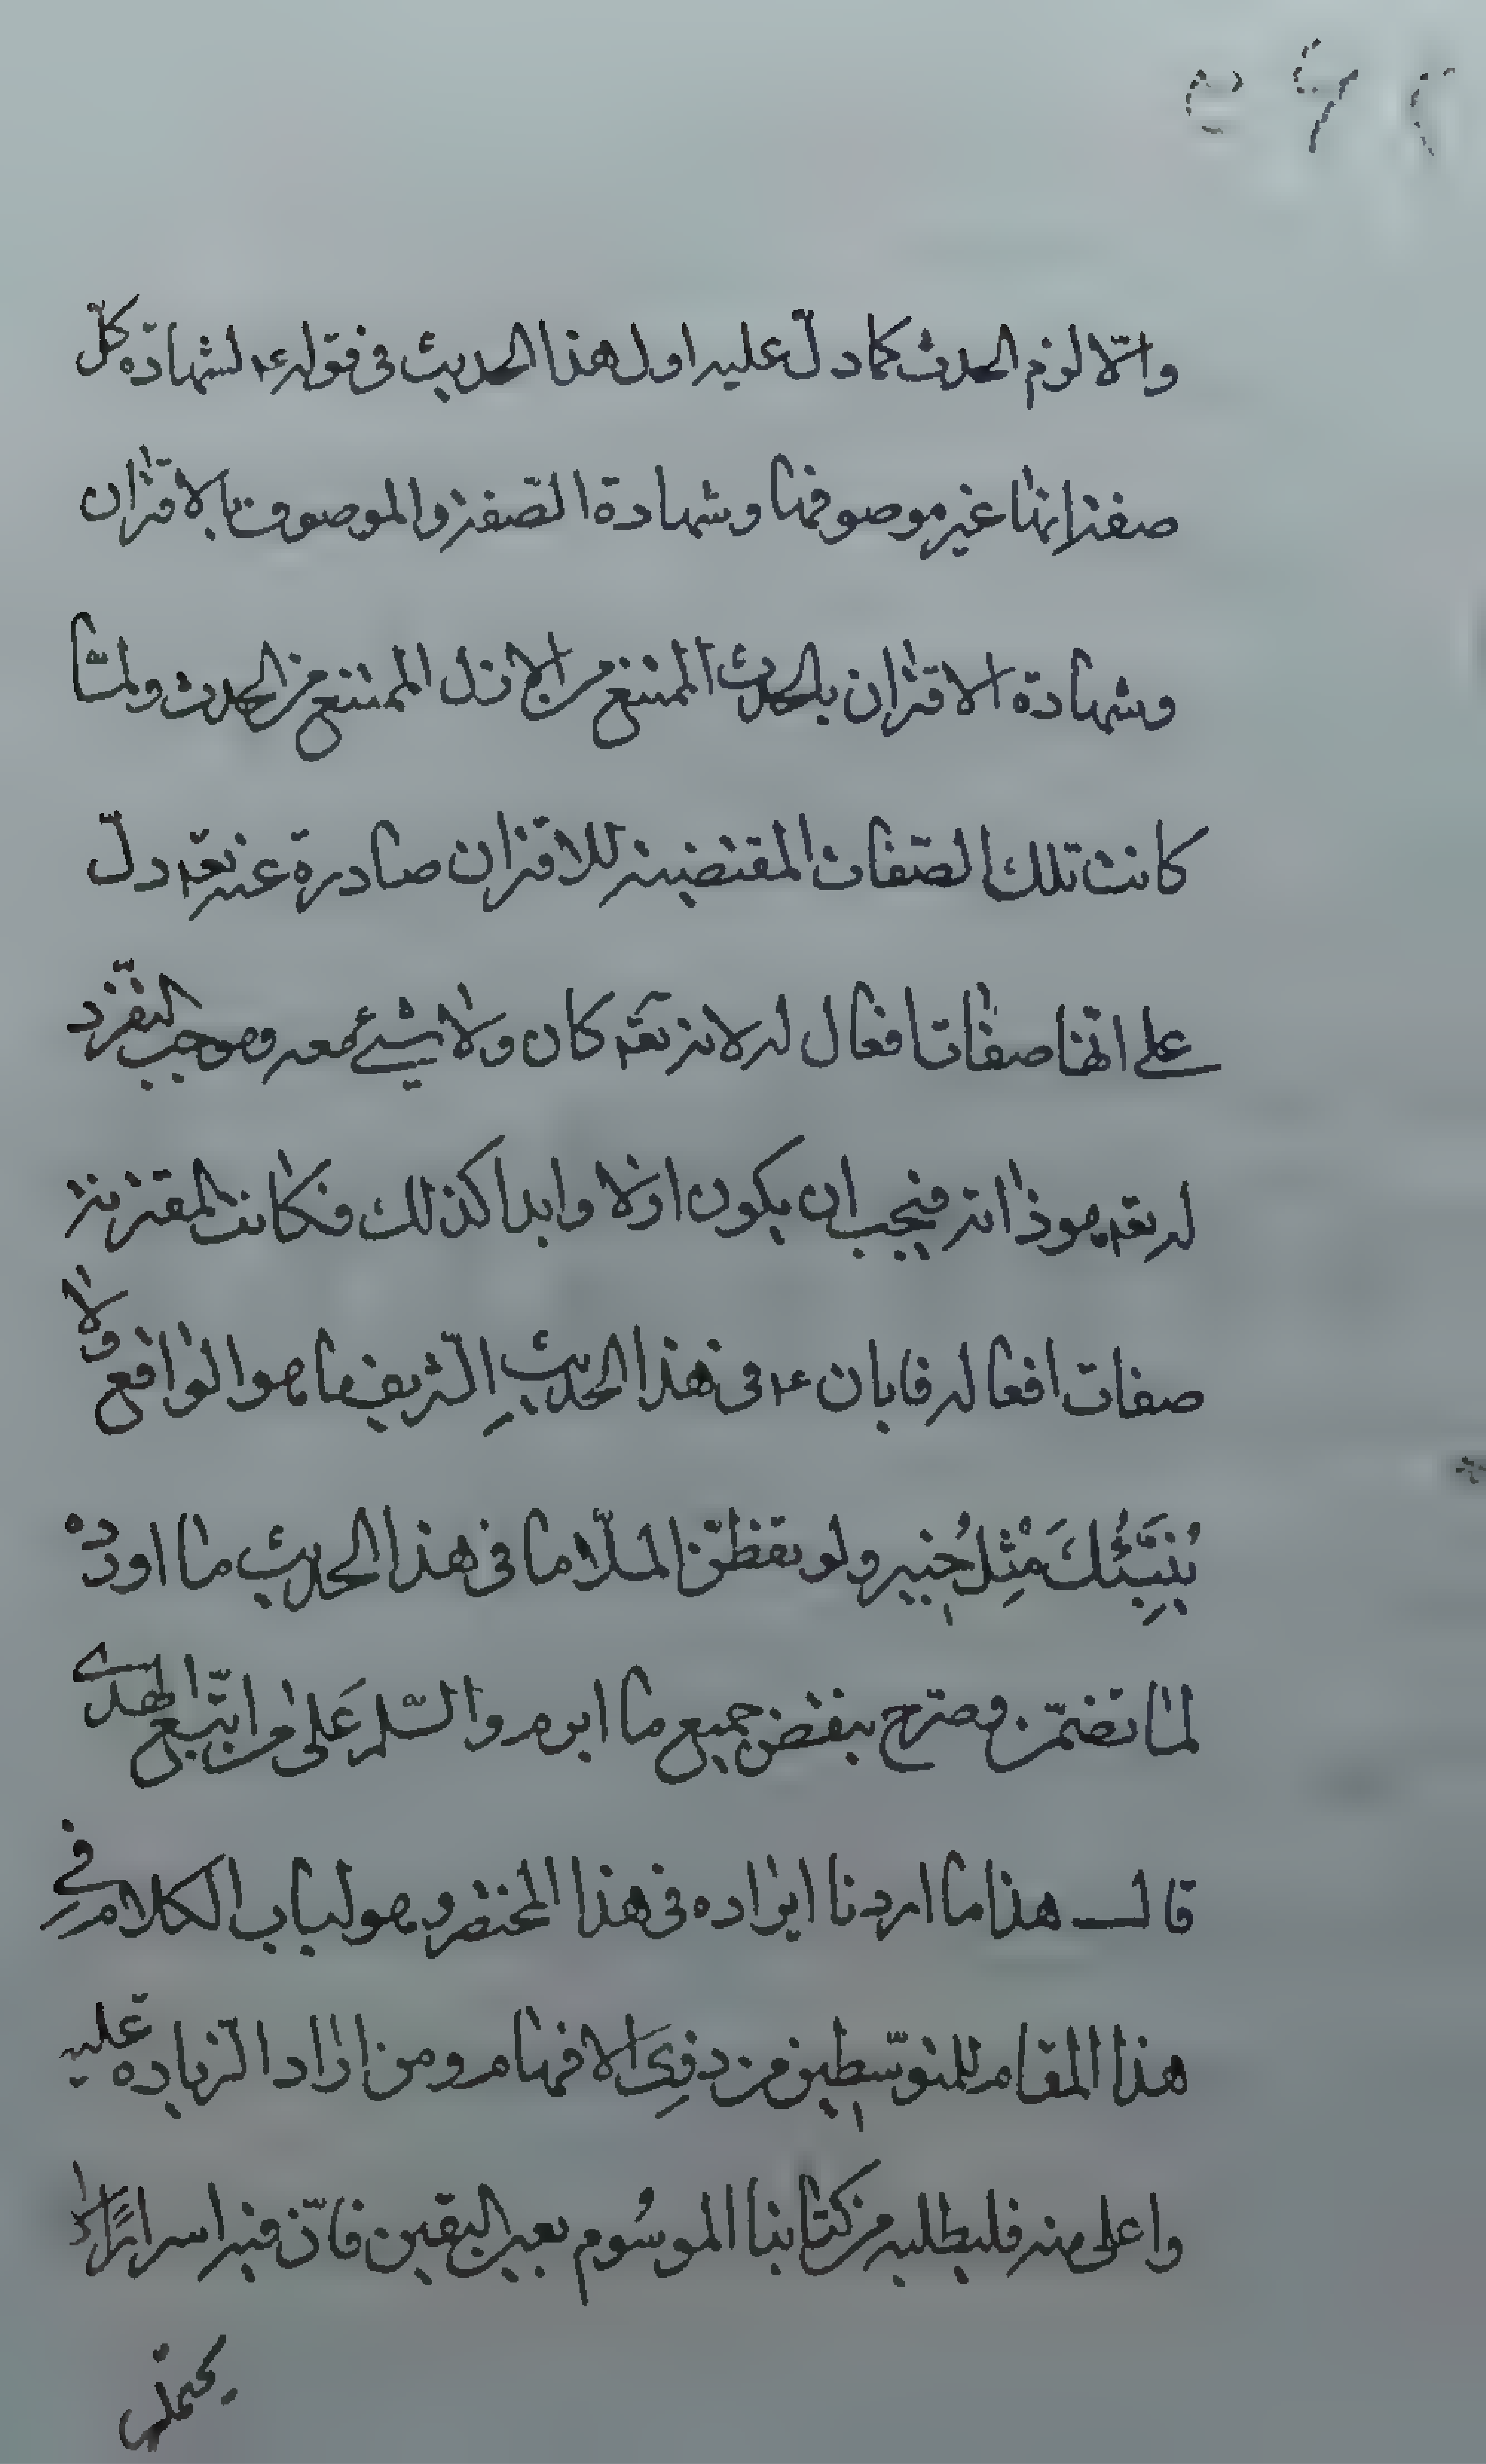 والّا لزم الحدث كما دلّ عليه اول هذا الحديث فى قوله ع لشهادة كلّ
صفة انها غير موصوفها وشهادة الصّفة والموصوف بالاقتران
وشهادة الاقتران بالحدث الممتنع من الازل الممتنع من الحدث ولمّا
كانت تلك الصّفات المقتضية للاقتران صادرة عنه تعم دلّ
على انّها صفات افعال له لانه تعم كان ولا شيئ معه وموجب التفرّد
له تعم هو ذاته فيجب ان يكون اولا وابدا كذلك فكانت المقترنة
صفات افعاله فابان ع فى هذا الحديث الشريف ما هو الواقع ولا
يُنَبِّئُكَ مِثْلُ خَبِيرٍ ولو تفطّن الملّا ما فى هذا الحديث ما اورده
لما تضمّن وصرّح بنقض جميع ما ابرم والسّلم عَلى من اتّبع الهدى
قال هذا ما اردنا ايراده فى هذا المختصر وهو لباب الكلام فِى
هذا المقام للمتوسّطين من ذوِى الافهام ومن اراد الزيادة عليه
واعلى منه فليطلبه من كتابنا الموسُوم بعين اليقين فانّ فيه اسرارًا لا
يحتملها